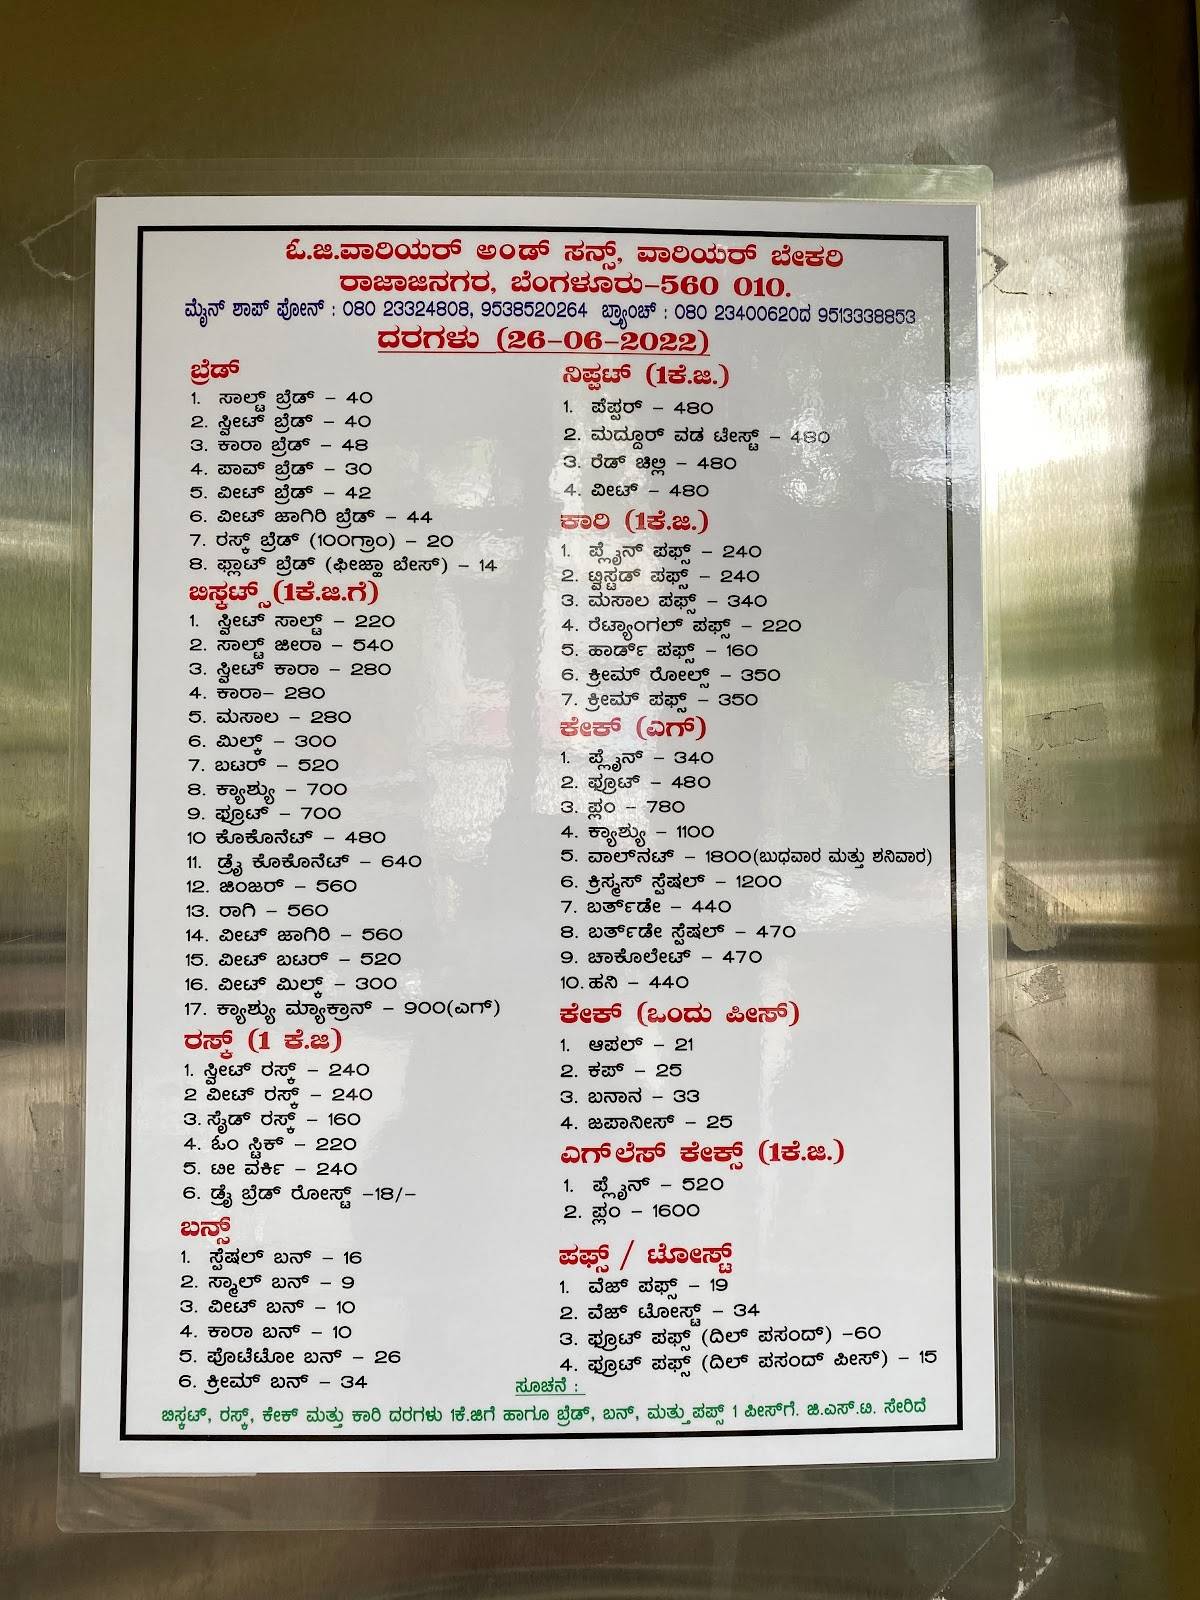 ಓ.ಜಿ.ವಾರಿಯರ್ ಅಂಡ್ ಸನ್ಸ್, ವಾರಿಯರ್ ಬೇಕರಿ
ರಾಜಾಜಿನಗರ, ಬೆಂಗಳೂರು-560 010.
ಮೈನ್ ಶಾಪ್ ಫೋನ್ : 080 23324808, 9538520264 ಬ್ರ್ಯಾಂಚ್ : 080 23400620ದ 9513338853
ದರಗಳು (26-06-2022)
ಬ್ರೆಡ್
1. ಸಾಲ್ಟ್ ಬ್ರೆಡ್ - 40
2. ಸ್ವೀಟ್ ಬ್ರೆಡ್ - 40
3. ಕಾರಾ ಬ್ರೆಡ್ - 48
4. ಪಾವ್ ಬ್ರೆಡ್ - 30
5. ವೀಟ್ ಬ್ರೆಡ್ - 42
6. ವೀಟ್ ಜಾಗಿರಿ ಬ್ರೆಡ್ - 44
7. ರಸ್ಕ್ ಬ್ರೆಡ್ (100ಗ್ರಾಂ) - 20
8. ಫ್ಲಾಟ್ ಬ್ರೆಡ್ (ಫೀಜ್ಹಾ ಬೇಸ್) - 14
ಬಿಸ್ಕಟ್ಸ್ (1ಕೆ.ಜಿ.ಗೆ)
1. ಸ್ವೀಟ್ ಸಾಲ್ಟ್ - 220
2. ಸಾಲ್ಟ್ ಜೀರಾ - 540
3. ಸ್ವೀಟ್ ಕಾರಾ - 280
4. ಕಾರಾ- 280
5. ಮಸಾಲ - 280
6. ಮಿಲ್ಕ್ - 300
7. ಬಟರ್ - 520
8. ಕ್ಯಾಶ್ಯು - 700
9. ಫ್ರೂಟ್ - 700
10 ಕೊಕೊನೆಟ್ - 480
11. ಡ್ರೈ ಕೊಕೊನೆಟ್ - 640
12. ಜಿಂಜರ್ - 560
13. ರಾಗಿ - 560
14. ವೀಟ್ ಜಾಗಿರಿ - 560
15. ವೀಟ್ ಬಟರ್ - 520
16. ವೀಟ್ ಮಿಲ್ಕ್ - 300
17. ಕ್ಯಾಶ್ಯು ಮ್ಯಾಕ್ರಾನ್ - 900(ಎಗ್)
ರಸ್ಕ್ (1 ಕೆ.ಜಿ)
1. ಸ್ವೀಟ್ ರಸ್ಕ್ - 240
2 ವೀಟ್ ರಸ್ಕ್ - 240
3. ಸೈಡ್ ರಸ್ಕ್ - 160
4. ಓಂ ಸ್ಟಿಕ್ - 220
5. ಟೀ ವರ್ಕಿ - 240
6. ಡ್ರೈ ಬ್ರೆಡ್ ರೋಸ್ಟ್ -18/-
ಬನ್ಸ್
1. ಸ್ಪೆಷಲ್ ಬನ್ - 16
2. ಸ್ಮಾಲ್ ಬನ್ - 9
3. ವೀಟ್ ಬನ್ - 10
4. ಕಾರಾ ಬನ್ - 10
5. ಪೊಟೆಟೋ ಬನ್ - 26
6. ಕ್ರೀಮ್ ಬನ್ - 34
ನಿಪ್ಪಟ್ (1ಕೆ.ಜಿ.)
1. ಪೆಪ್ಪರ್ - 480
2. ಮದ್ದೂರ್ ವಡ ಟೇಸ್ಟ್ - 480
3. ರೆಡ್ ಚಿಲ್ಲಿ - 480
4. ವೀಟ್ - 480
ಕಾರಿ (1ಕೆ.ಜಿ.)
1. ಪ್ಲೈನ್ ಪಫ್ಸ್ - 240
2. ಟ್ವಿಸ್ಟಡ್ ಪಫ್ಸ್ - 240
3. ಮಸಾಲ ಪಫ್ಸ್ - 340
4. ರೆಟ್ಯಾಂಗಲ್ ಪಫ್ಸ್ - 220
5. ಹಾರ್ಡ್ ಪಫ್ಸ್ - 160
6. ಕ್ರೀಮ್ ರೋಲ್ಸ್ - 350
7. ಕ್ರೀಮ್ ಪಫ್ಸ್ - 350
ಕೇಕ್ (ಎಗ್)
1. ಪ್ಲೈನ್ - 340
2. ಫ್ರೂಟ್ - 480
3. ಪ್ಲಂ - 780
4. ಕ್ಯಾಶ್ಯು - 1100
5. ವಾಲ್‌ನಟ್ - 1800(ಬುಧವಾರ ಮತ್ತು ಶನಿವಾರ)
6. ಕ್ರಿಸ್ಮಸ್ ಸ್ಪೆಷಲ್ - 1200
7. ಬರ್ತ್‌ಡೇ - 440
8. ಬರ್ತ್‌ಡೇ ಸ್ಪೆಷಲ್ - 470
9. ಚಾಕೊಲೇಟ್ - 470
10. ಹನಿ - 440
ಕೇಕ್ (ಒಂದು ಪೀಸ್)
1. ಆಪಲ್ - 21
2. ಕಪ್ - 25
3. ಬನಾನ - 33
4. ಜಪಾನೀಸ್ - 25
ಎಗ್‌ಲೆಸ್ ಕೇಕ್ಸ್ (1ಕೆ.ಜಿ.)
1. ಪ್ಲೈನ್ - 520
2. ಪ್ಲಂ - 1600
ಪಫ್ಸ್ / ಟೋಸ್ಟ್
1. ವೆಜ್ ಪಫ್ಸ್ - 19
2. ವೆಜ್ ಟೋಸ್ಟ್ - 34
3. ಫ್ರೂಟ್ ಪಫ್ಸ್ (ದಿಲ್ ಪಸಂದ್) -60
4. ಫ್ರೂಟ್ ಪಫ್ಸ್ (ದಿಲ್ ಪಸಂದ್ ಪೀಸ್) - 15
ಸೂಚನೆ :
ಬಿಸ್ಕಟ್, ರಸ್ಕ್, ಕೇಕ್ ಮತ್ತು ಕಾರಿ ದರಗಳು 1ಕೆ.ಜಿಗೆ ಹಾಗೂ ಬ್ರೆಡ್, ಬನ್, ಮತ್ತು ಪಪ್ಸ್ 1 ಪೀಸ್‌ಗೆ. ಜಿ.ಎಸ್.ಟಿ. ಸೇರಿದೆ